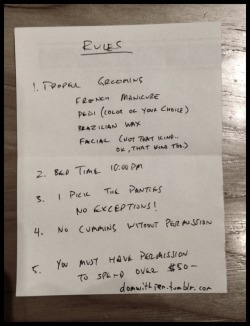 RULES
1. PROPER GROOMING
FRENCH MANICURE
PEDI (COLOR OF YOUR CHOICE)
BRAZILIAN WAX
FACIAL (NOT THAT KIND..
OK, THAT KIND TOO.)
2. BED TIME 10:00PM
3. I PICK THE PANTIES
NO EXCEPTIONS!
4. NO CUMMING WITHOUT PERMISSION
5. YOU MUST HAVE PERMISSION
TO SPEND OVER $50-
domwithpen.tumblr.com